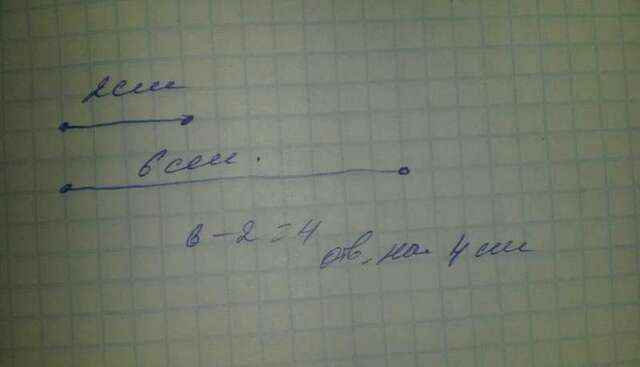 2см
6см.
6-2=4
отв. на 4 см